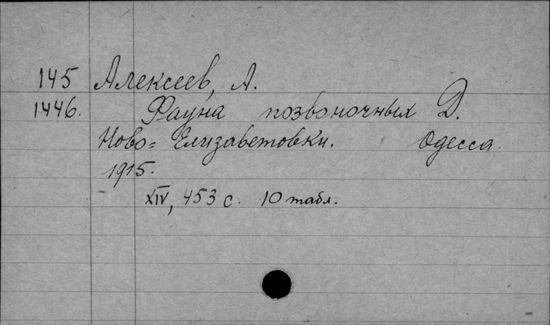 145 Алексеев, А.
1446. Фауна позвоночных Д.
Ново-Елизаветовки. Одесса
1915.
XIV, 453 с. 10 табл.